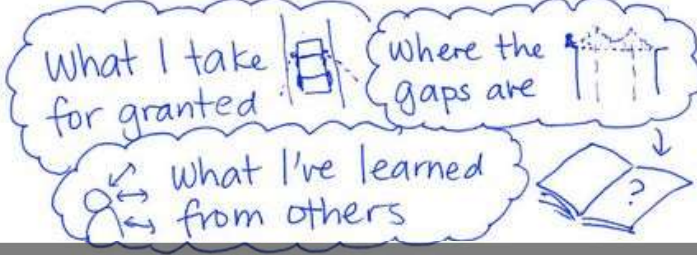 What I take
for granted
where the
gaps are
what I've learned
from others
?